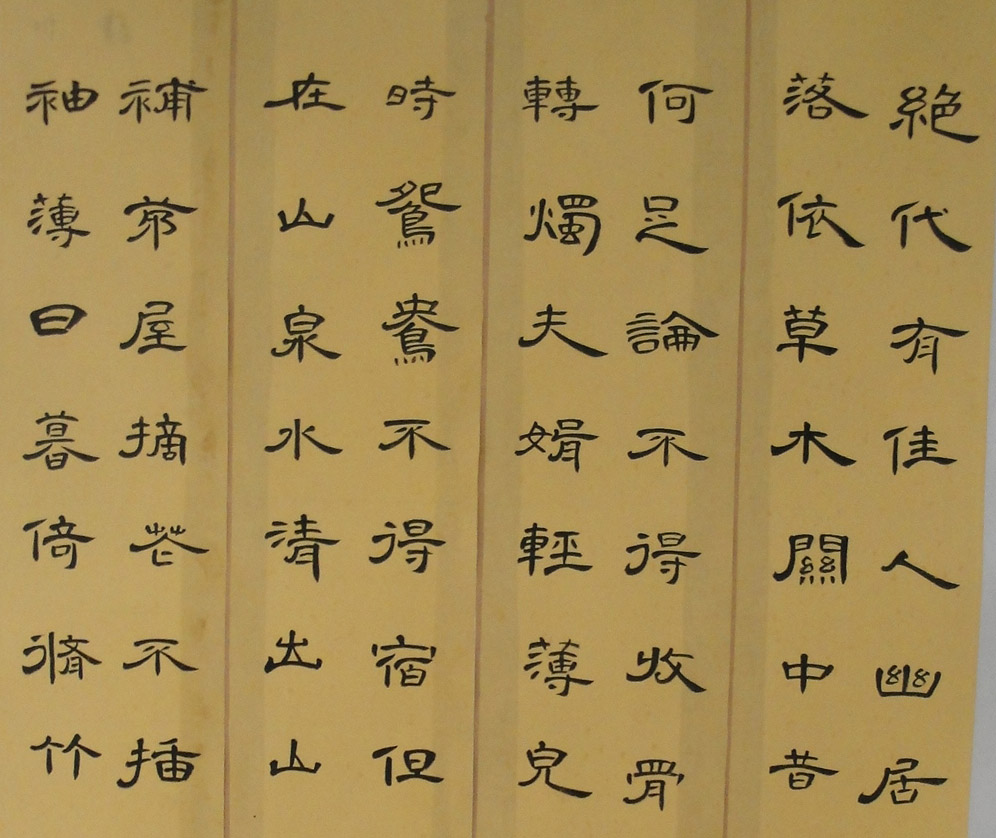 絶代有佳人幽居
落依草木關中昔
何足論不得收骨
轉燭夫婿輕薄兒
時鴛鴦不得宿但
在山泉水清出山
補茅屋摘花不插
袖薄日暮倚脩竹